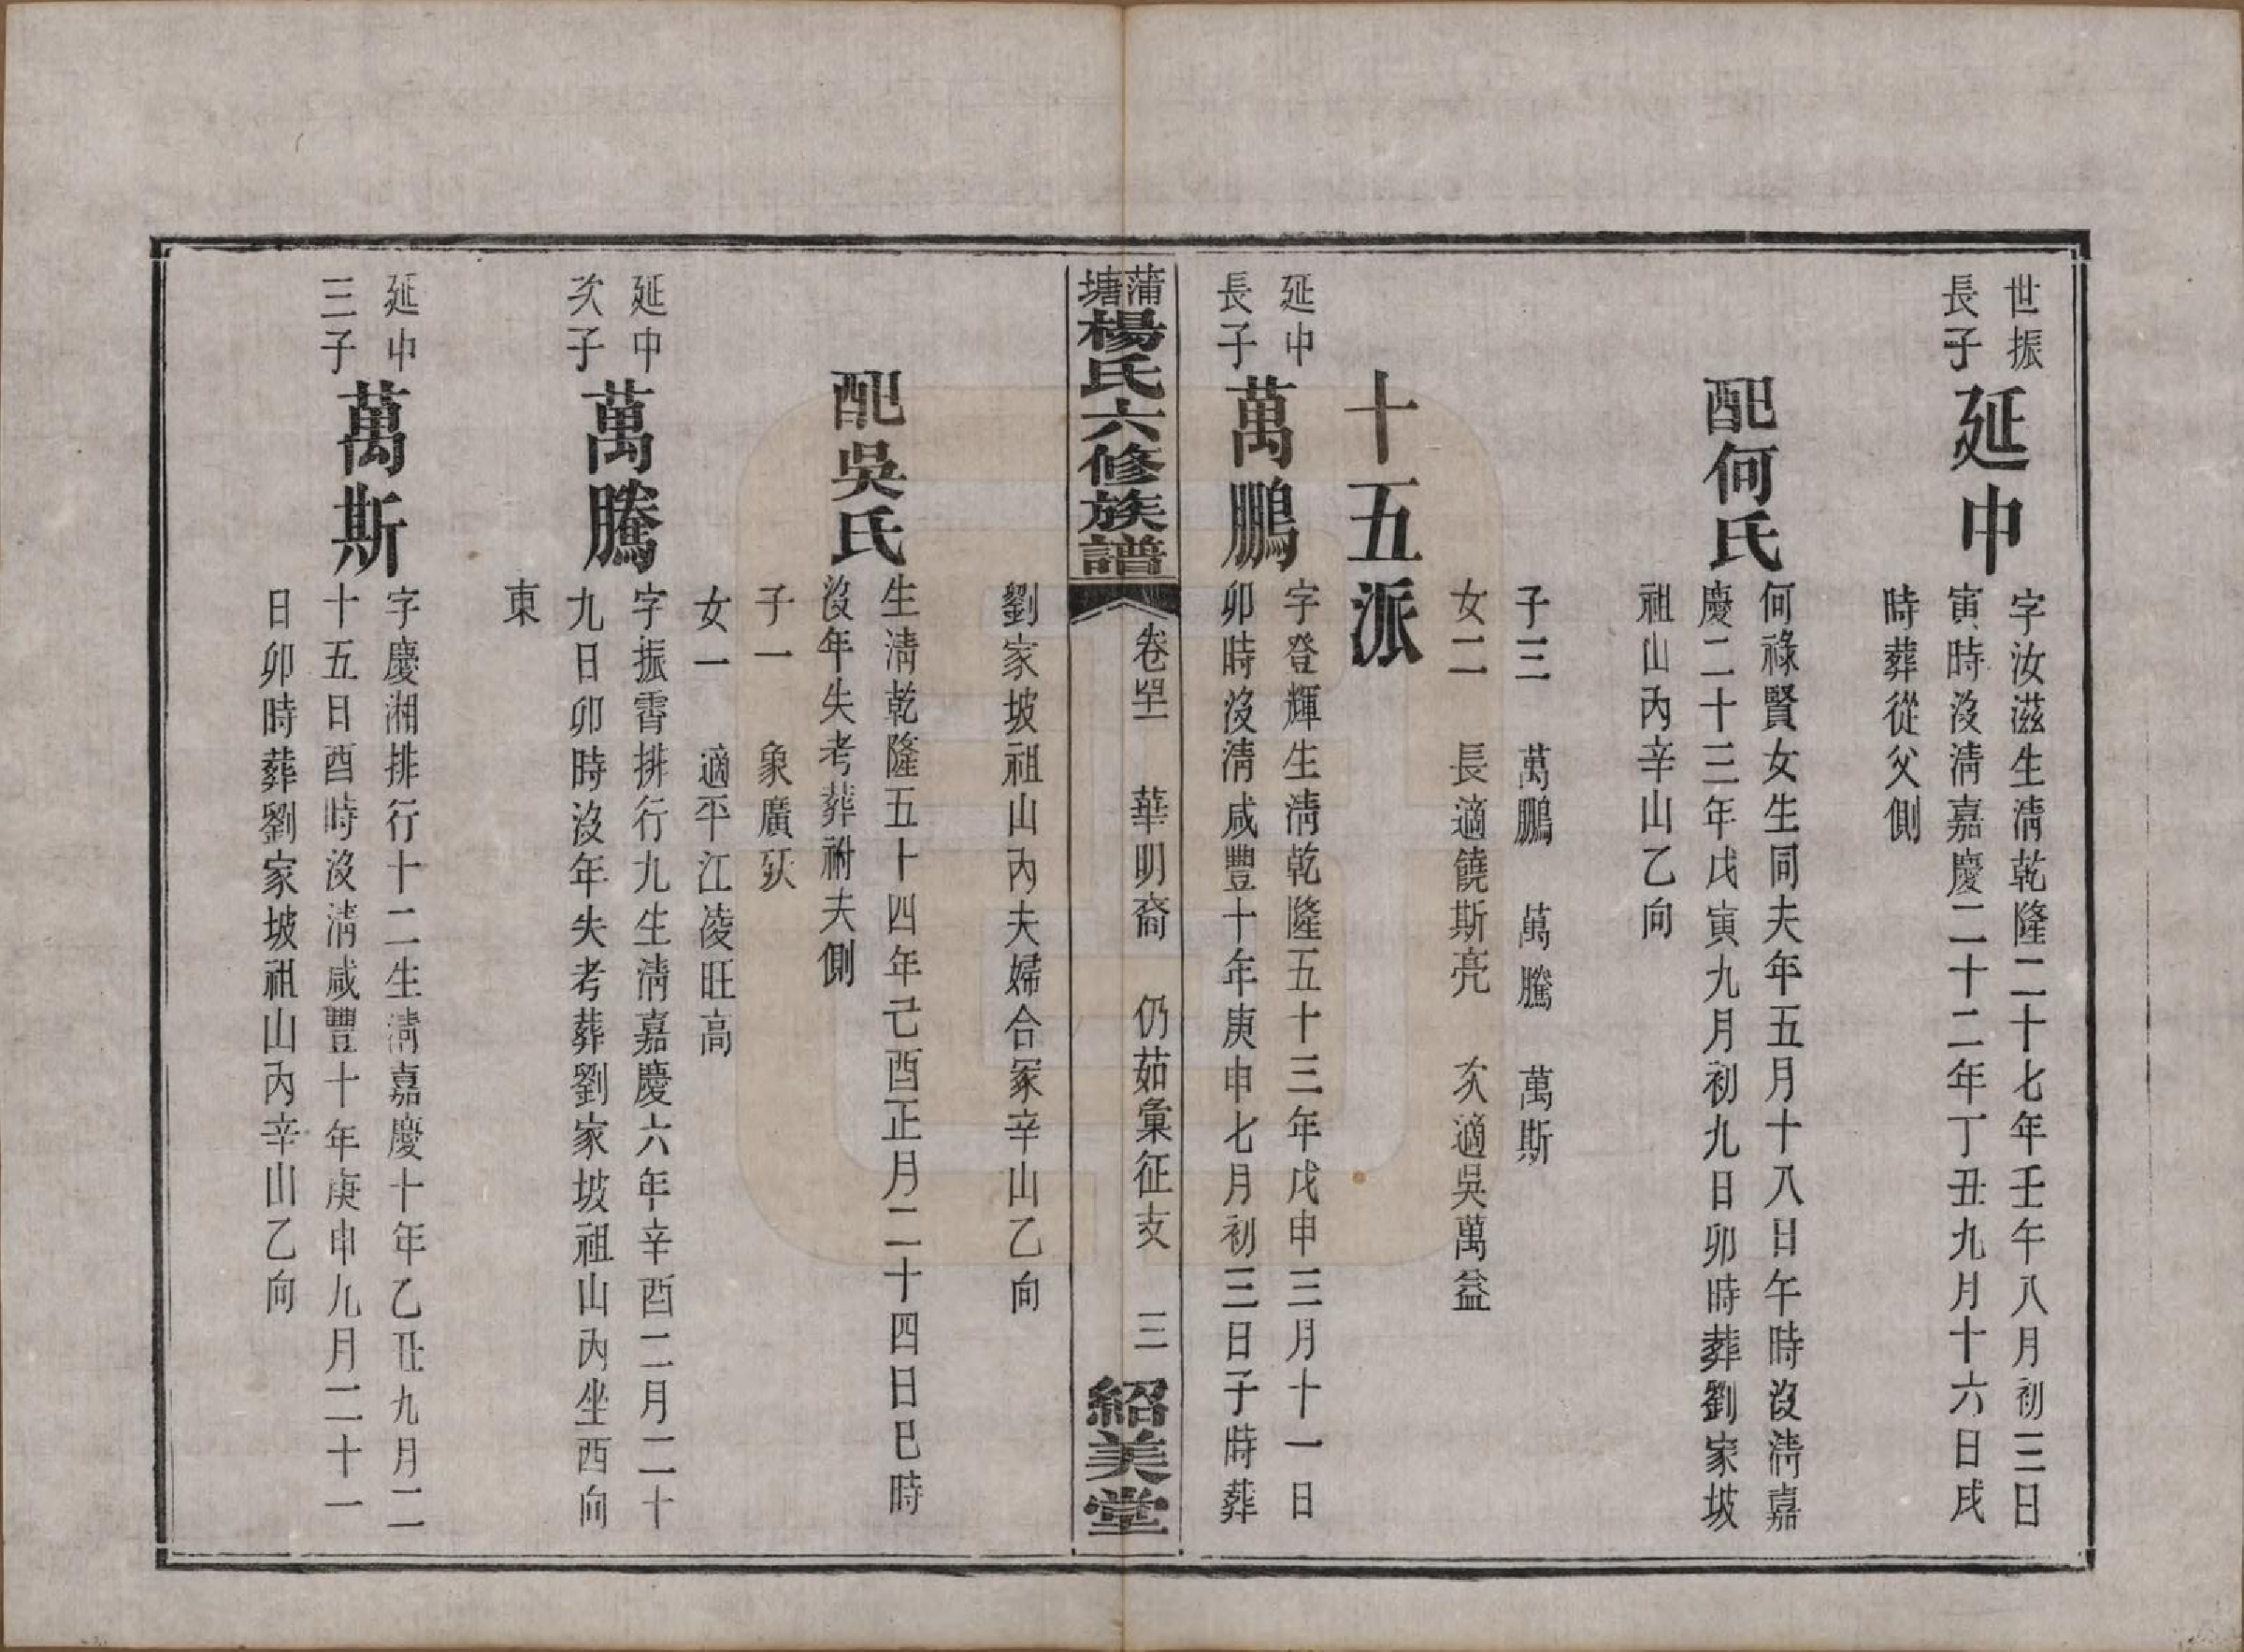 世振
長子
延中
字汝滋生淸乾隆二十七年壬午八月初三日
寅時沒淸嘉慶二十二年丁丑九月十六日戌
時葬從父側
配何氏
何祿賢女生同夫年五月十八日午時沒淸嘉
慶二十三年戊寅九月初九日卯時葬劉家坡
祖山內辛山乙向
子三 萬鵬 萬騰 萬斯
女二 長適饒斯亮 次適吳萬益
十五派
延中
長子
萬鵬
字登輝生淸乾隆五十三年戊申三月十一日
卯時沒淸咸豐十年庚申七月初三日子時葬
蒲塘楊氏六修族譜
卷四十一 華明裔 仍茹彙征支 三
紹美堂
劉家坡祖山內夫婦合冢辛山乙向
配吳氏
生淸乾隆五十四年己酉正月二十四日巳時
沒年失考葬祔夫側
子一 象廣
女一 適平江凌旺高
延中
次子
萬騰
字振霄排行九生淸嘉慶六年辛酉二月二十
九日卯時沒年失考葬劉家坡祖山內坐西向
東
延中
三子
萬斯
字慶湘排行十二生淸嘉慶十年乙丑九月二
十五日酉時沒淸咸豐十年庚申九月二十一
日卯時葬劉家坡祖山內辛山乙向